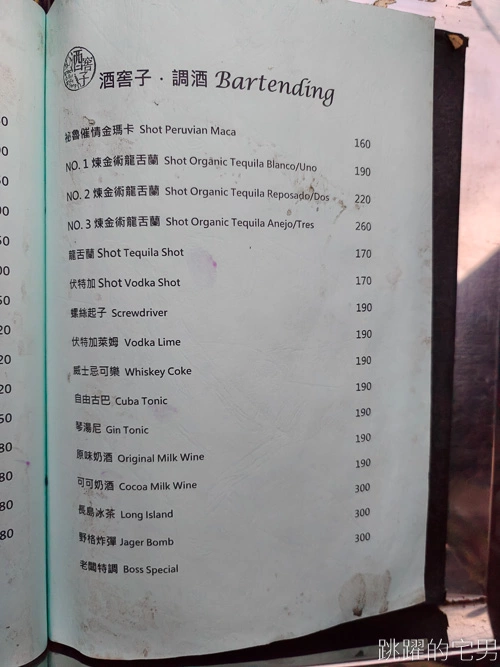 酒窖子
酒窖子．調酒 Bartending
祕魯催情金瑪卡 Shot Peruvian Maca 160
NO. 1 煉金術龍舌蘭 Shot Organic Tequila Blanco/Uno 190
NO. 2 煉金術龍舌蘭 Shot Organic Tequila Reposado/Dos 220
NO. 3 煉金術龍舌蘭 Shot Organic Tequila Anejo/Tres 260
龍舌蘭 Shot Tequila Shot 170
伏特加 Shot Vodka Shot 170
螺絲起子 Screwdriver 190
伏特加萊姆 Vodka Lime 190
威士忌可樂 Whiskey Coke 190
自由古巴 Cuba Tonic 190
琴湯尼 Gin Tonic 190
原味奶酒 Original Milk Wine 190
可可奶酒 Cocoa Milk Wine 190
長島冰茶 Long Island 300
野格炸彈 Jager Bomb 300
老闆特調 Boss Special 300
跳躍的宅男